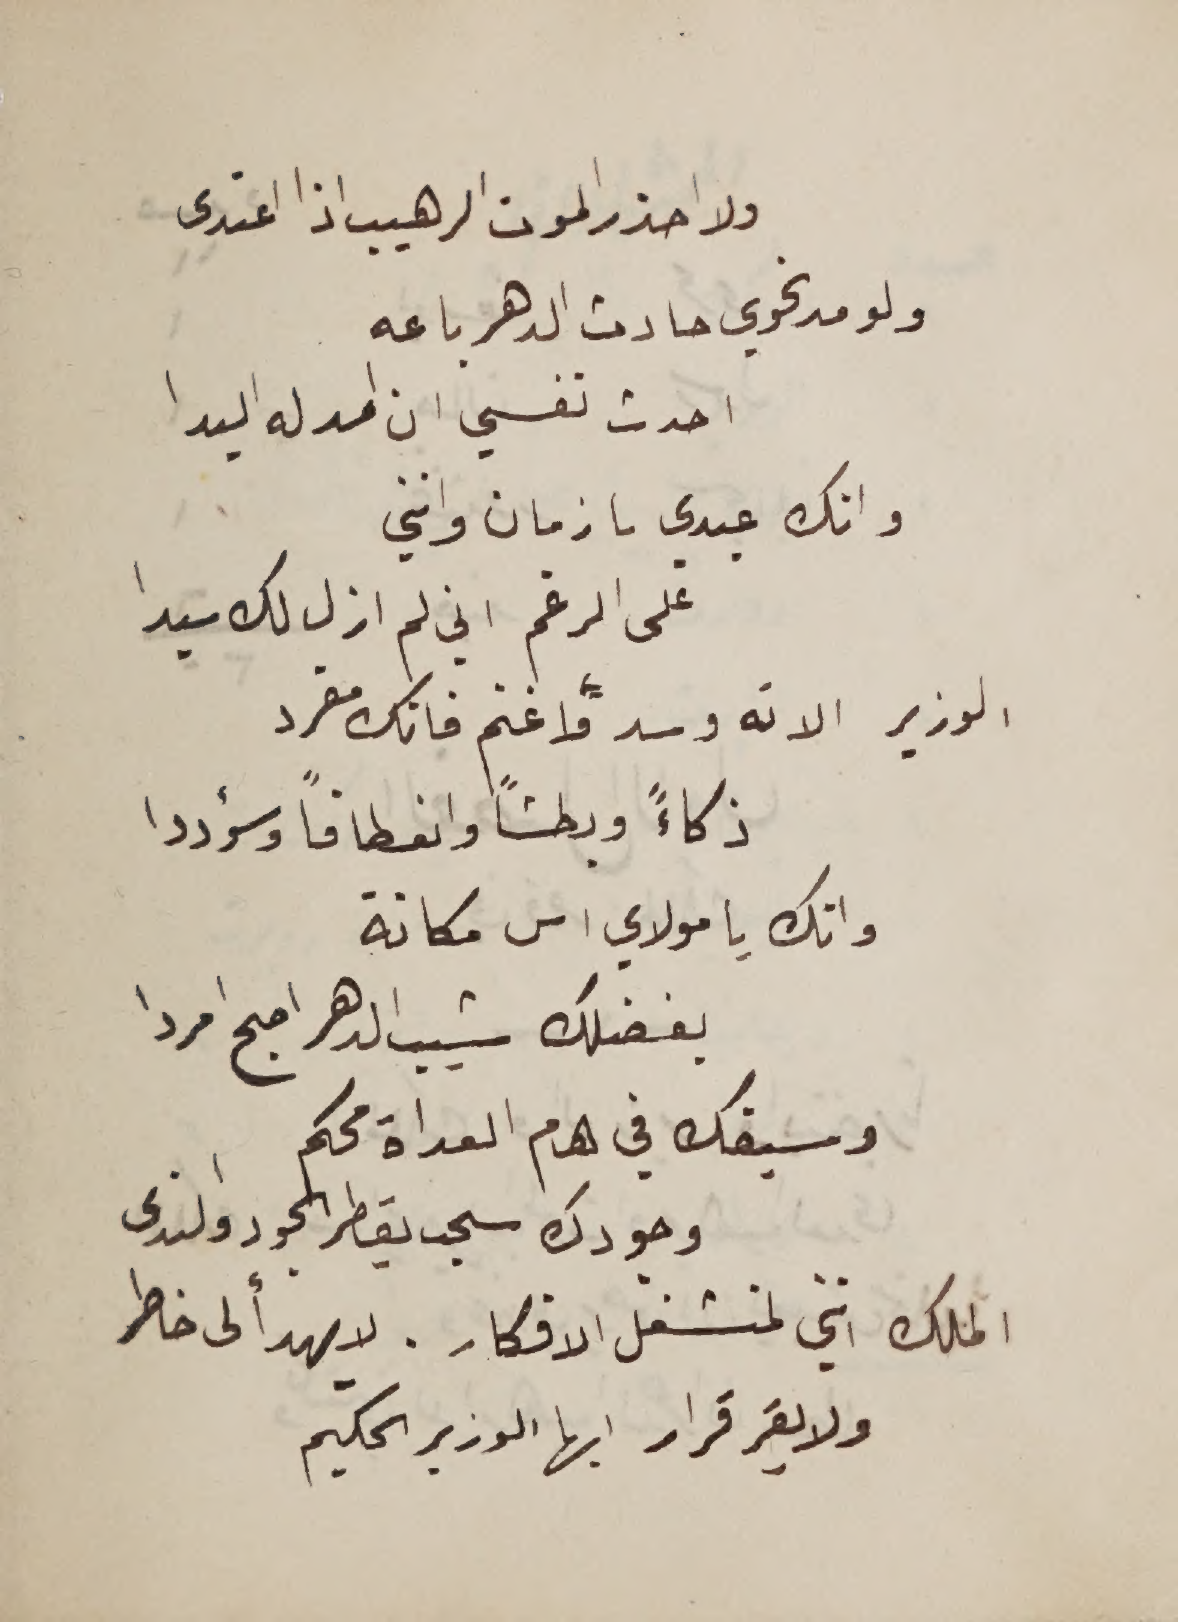 ولا احذر الموت الرهيب اذا اعتدى
ولو مد نحوي حادث الدهر باعه
احدث نفسي ان امد له اليدا
وانك عبدي يا زمان وانني
على الرغم اني لم ازل لك سيدا
الوزير الا ته وسد واغنم فانك مفرد
ذكاءً وبطشاً وانعطافاً وسؤددا
وانك يا مولاي اس مكانة
بفضلك شيب الدهر اصبح امردا
وسيفك في هام العداة محكم
وجودك سحب يقطر الجود والندى
الملك انني لمنشغل الافكار . لا يهدأ لى خاطر
ولا يقر قرار ايها الوزير الحكيم